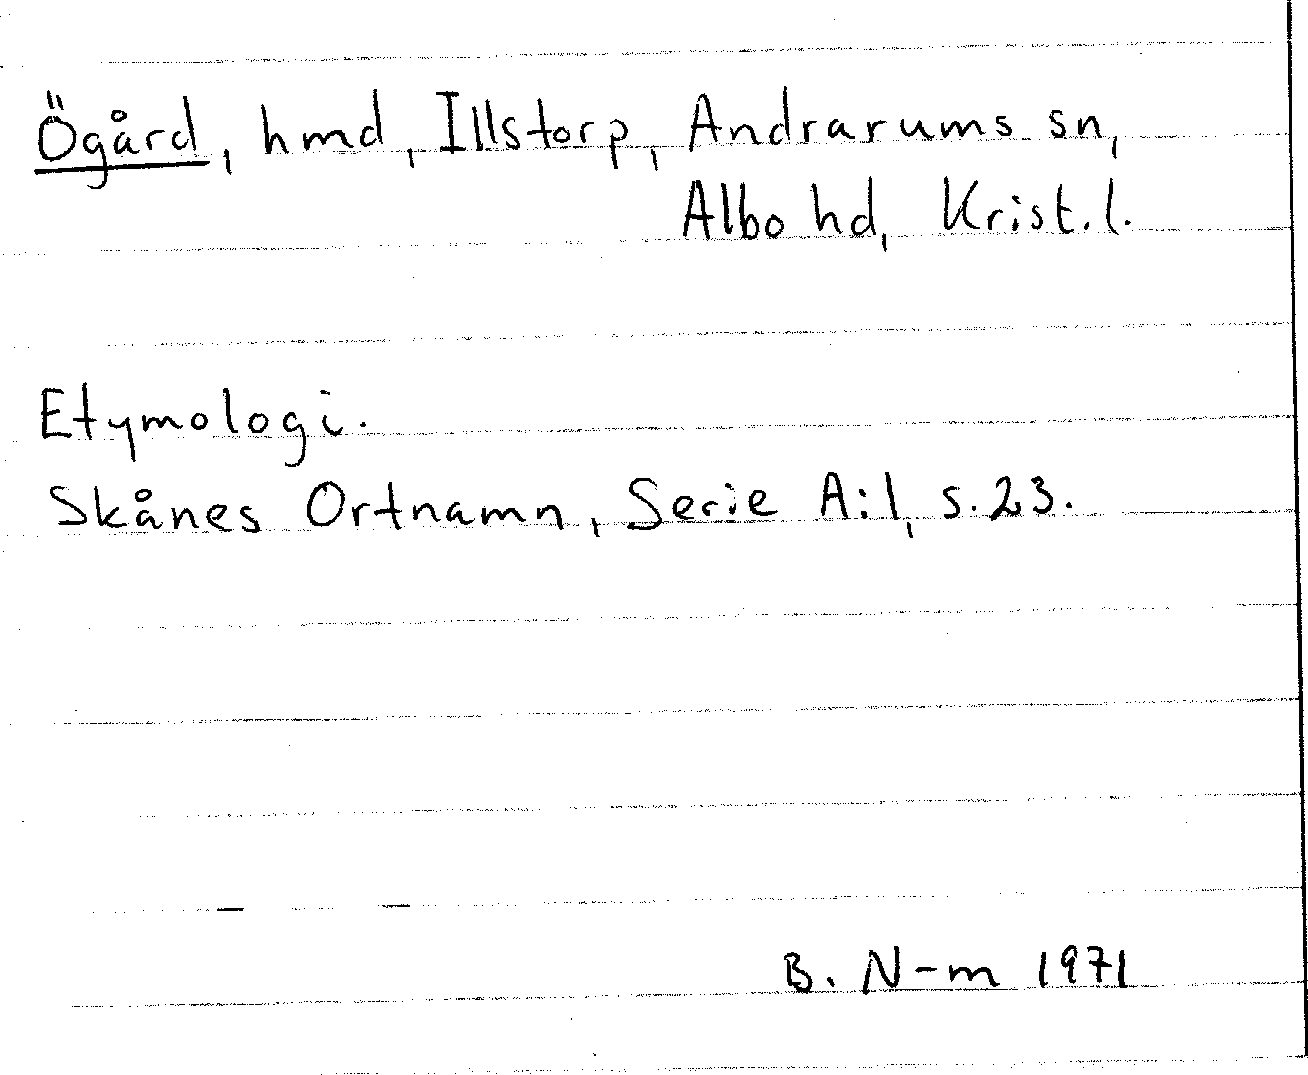 Ögård, hmd, Illstorp, Andrarums sn,
Albo hd, Krist.l.
Etymologi.
Skånes Ortnamn, Serie A:1, s.23.
B. N-m 1971